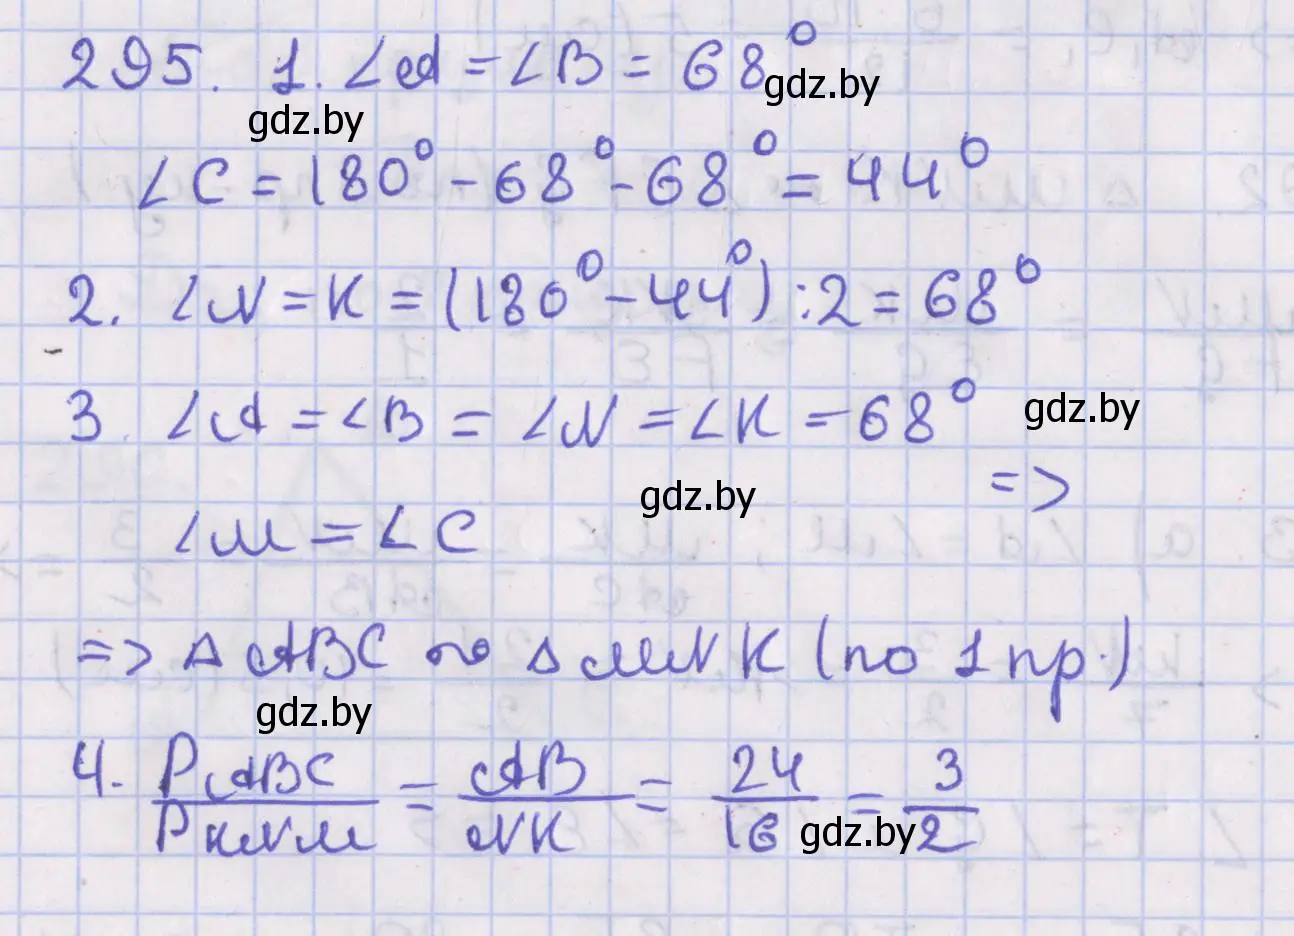 295. 1. ∠A = ∠B = 68°
gdz.by
gdz.by
∠C = 180° - 68° - 68° = 44°
2. ∠N = K = (180° - 44°) : 2 = 68°
3. ∠A = ∠B = ∠N = ∠K = 68°
gdz.by
=>
gdz.by
∠M = ∠C
=> Δ ABC ∾ Δ MNK (по 1 пр.)
gdz.by
4. P ABC / P KNM = AB / NK = 24 / 16 = 3 / 2
gdz.by